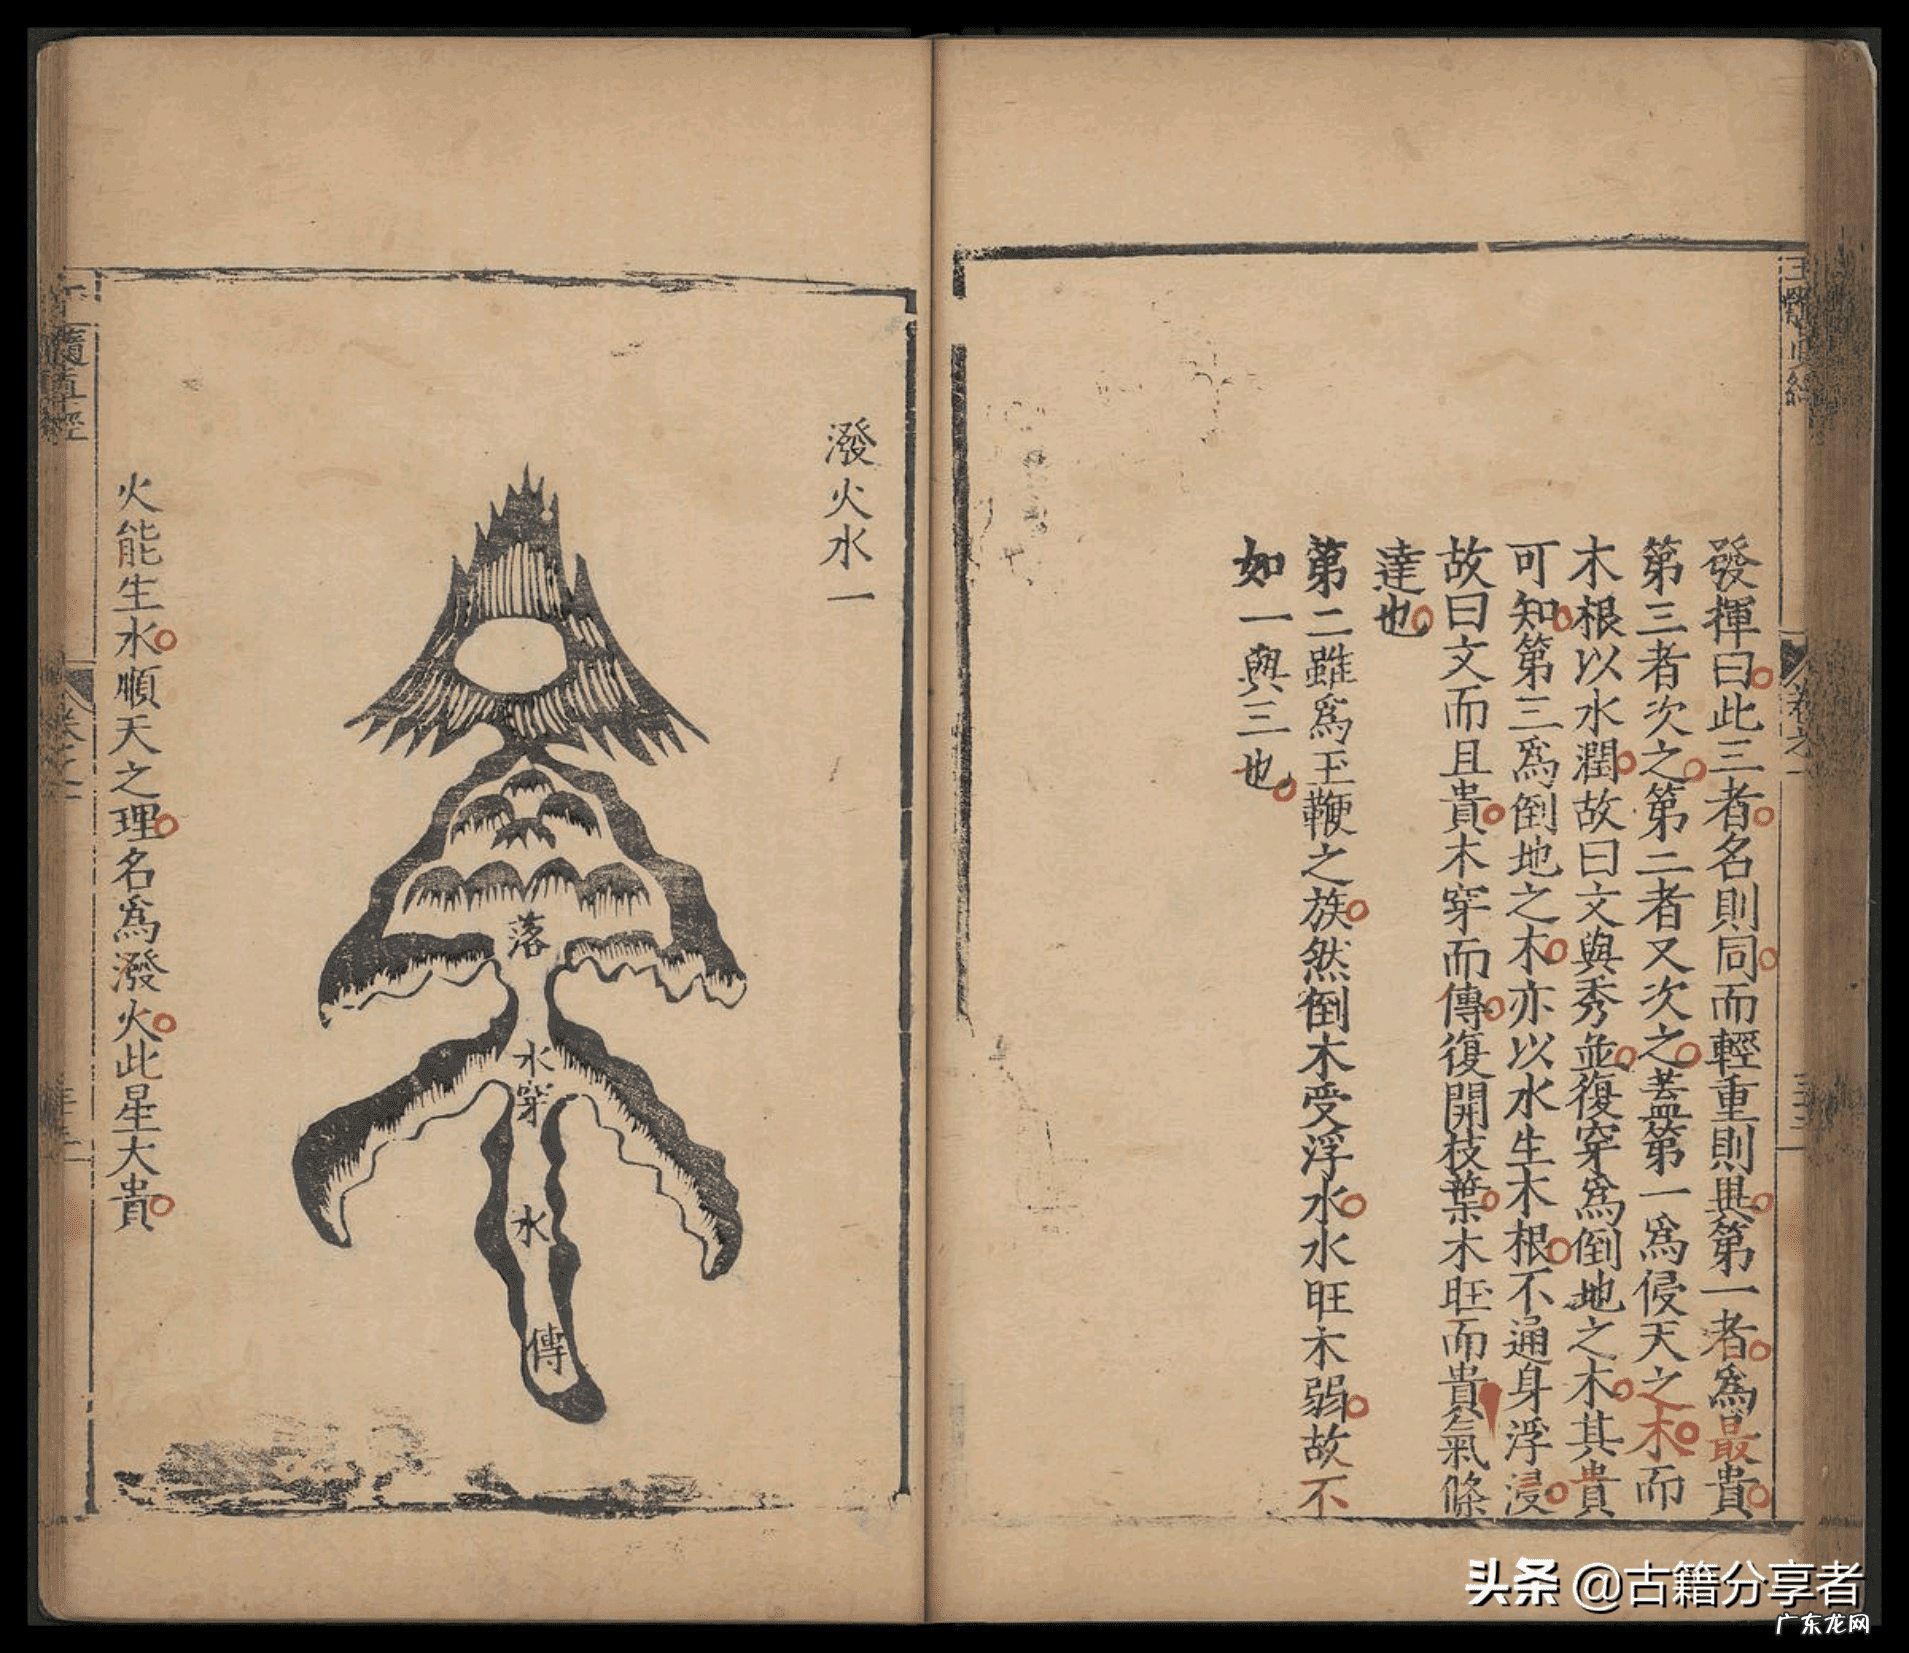 發揮曰此三者名則同而輕重則異第一者爲最貴
第三者次之第二者又次之葢第一爲侵天之木而
木根以水潤故曰文與秀並復穿爲倒地之木其貴
可知第三爲倒地之木亦以水生木根不通身浮浸
故曰文而且貴木穿而傳復開枝葉木旺而貴氣條
達也
第二雖爲玉鞭之族然倒木受浮水水旺木弱故不
如一與三也
卷之一
潑火水一
落
水穿
水
傳
火能生水順天之理名爲潑火此星大貴
髓真經
卷之一
头条 @古籍分享者
广东龙网